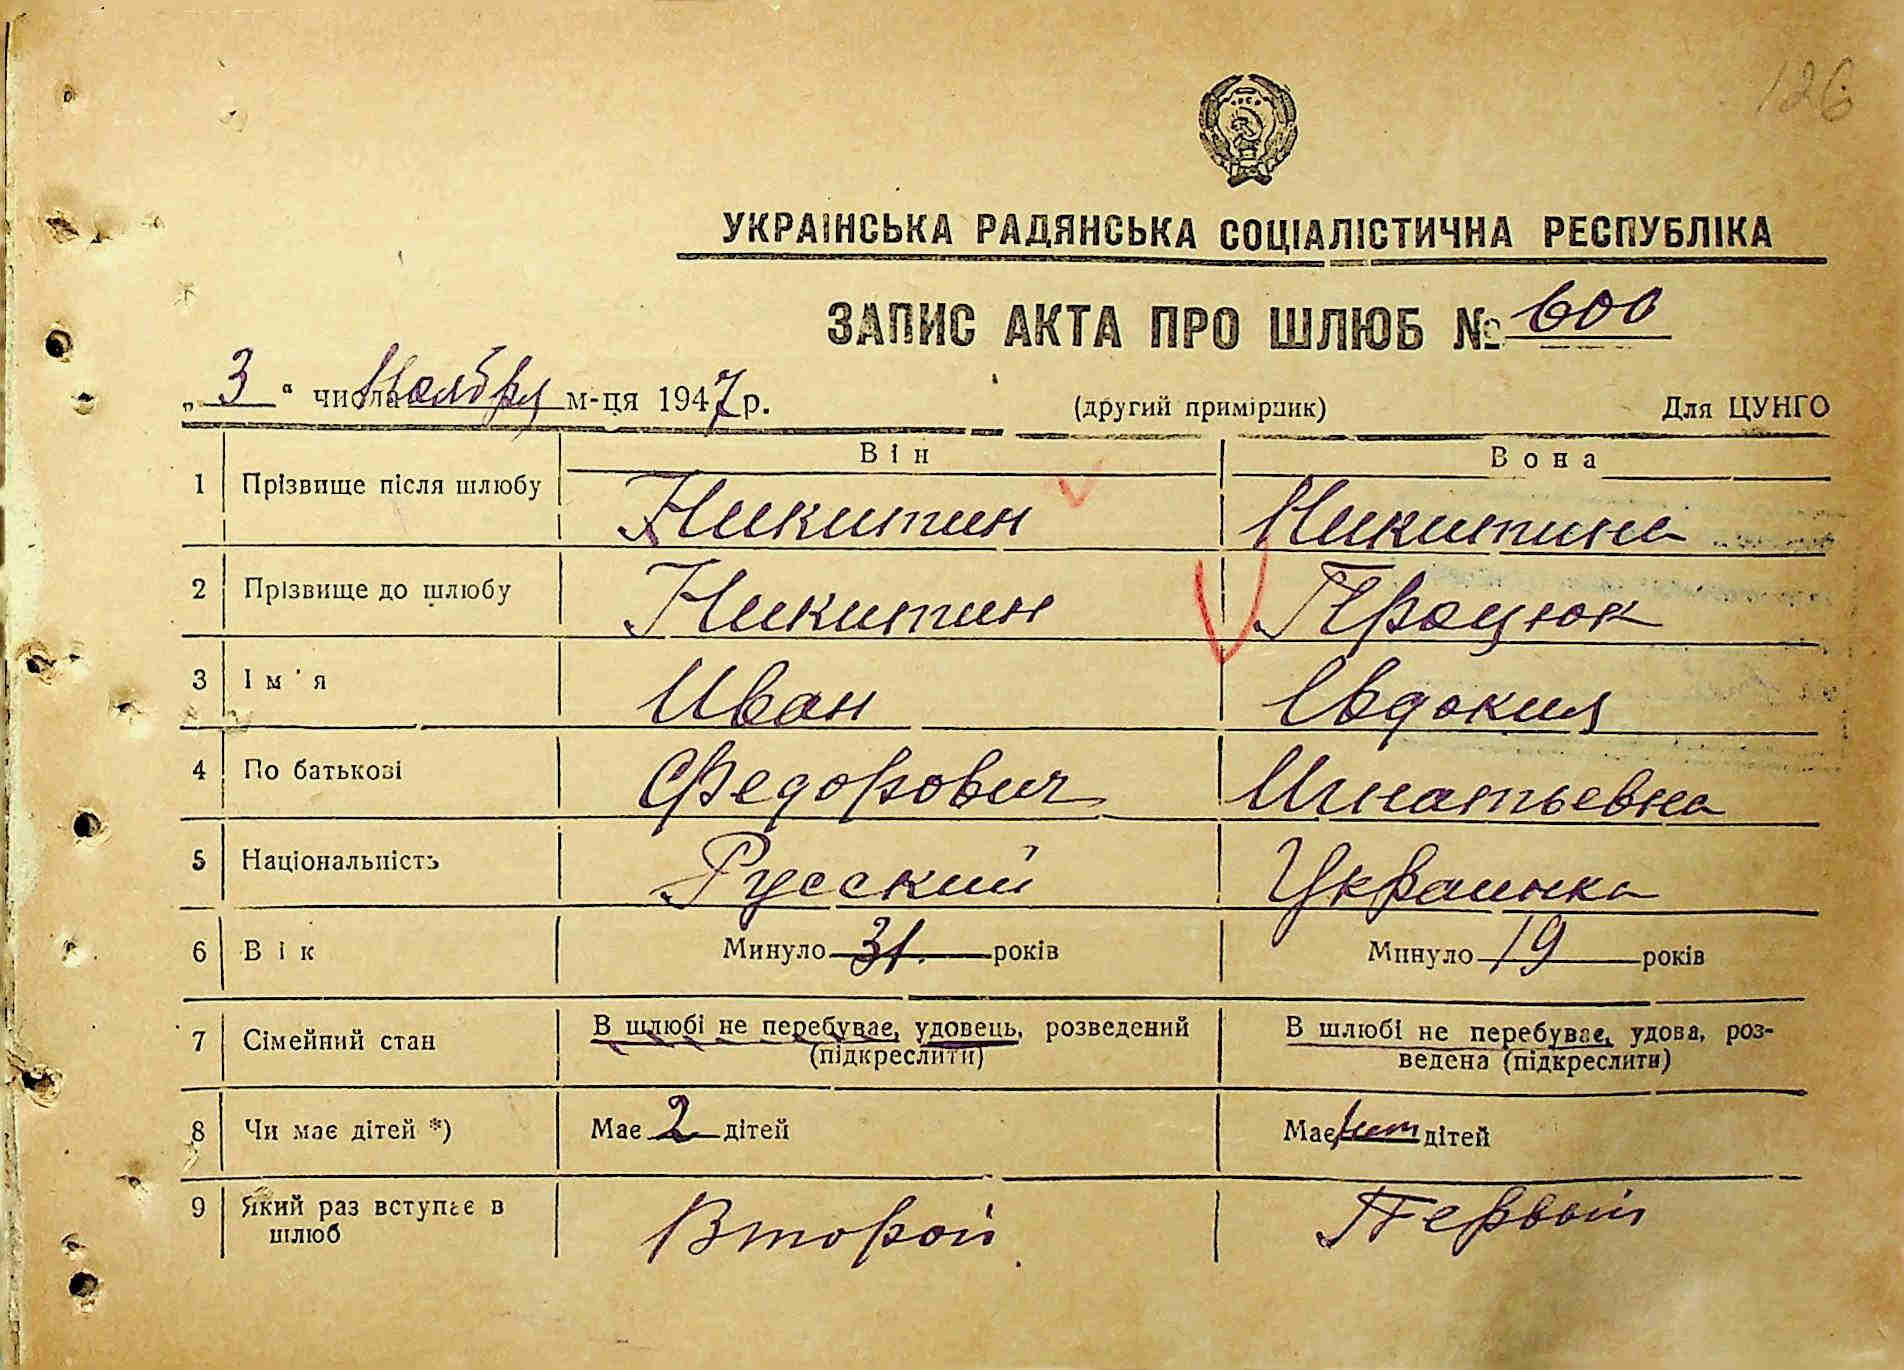 126
УКРАЇНСЬКА РАДЯНСЬКА СОЦІАЛІСТИЧНА РЕСПУБЛІКА
ЗАПИС АКТА ПРО ШЛЮБ № 600
„ 3 “ числа Ноября м-ця 1947 р. (другий примірник) Для ЦУНГО
Він Вона
1 Прізвище після шлюбу Никитин Никитина
2 Прізвище до шлюбу Никитин Процюк
3 Ім'я Иван Евдокия
4 По батькові Федорович Игнатьевна
5 Національність Русский Украинка
6 Вік Минуло 31. років Минуло 19 років
7 Сімейний стан В шлюбі не перебуває, удовець, розведений (підкреслити) В шлюбі не перебуває, удова, роз-
ведена (підкреслити)
8 Чи має дітей *) Має 2 дітей Має нет дітей
9 Який раз вступає в шлюб Второй Первый